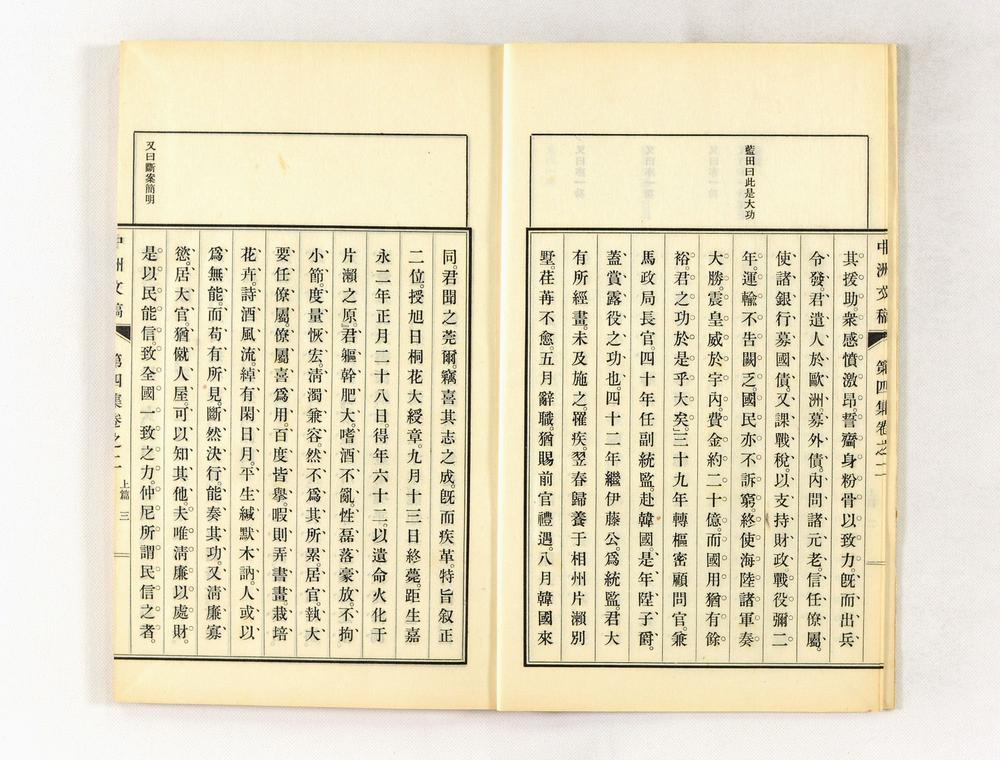 中洲文稿　第四集卷之二
藍田曰此是大功
其援助。衆感憤激昂。誓齎身粉骨以致力。旣而出兵
令發。君遣人於歐洲。募外債。內問諸元老。信任僚屬。
使諸銀行募國債。又課戰稅。以支持財政。戰役彌二
年。運輸不吿闕乏。國民亦不訴窮。終使海陸諸軍奏
大勝。震皇威於宇內。費金約二十億。而國用猶有餘
裕。君之功於是乎大矣。三十九年轉樞密顧問官。兼
馬政局長官。四十年任副統監赴韓國。是年陞子爵。
蓋賞露役之功也。四十二年繼伊藤公。爲統監。君大
有所經畫。未及施之。罹疾。翌春歸養于相州片瀨別
墅。荏苒不愈。五月辭職。猶賜前官禮遇。八月韓國來
同。君聞之莞爾。竊喜其志之成。旣而疾革。特旨叙正
二位。授旭日桐花大綬章。九月十三日終薨。距生嘉
永二年正月二十八日。得年六十二。以遺命火化于
片瀨之原。君軀幹肥大。嗜酒不亂。性磊落豪放。不拘
小節。度量恢宏。淸濁兼容。然不爲其所累。居官。執大
要任僚屬。僚屬喜爲用。百度皆擧。暇則弄書畫栽培
花卉。詩酒風流。綽有閑日月。平生緘默木訥。人或以
爲無能。而苟有所見。斷然決行。能奏其功。又淸廉寡
慾。居大官。猶僦人屋。可以知其他。夫唯淸廉以處財。
是以民能信。致全國一致之力。仲尼所謂民信之者。
又曰斷案簡明
中洲文稿　第四集卷之二　上篇　三